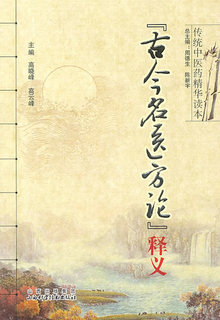 传统中医药精华读本
总主编 周德生 陈新宇
『古今名医方论』
释义
主编 高晓峰 高云峰